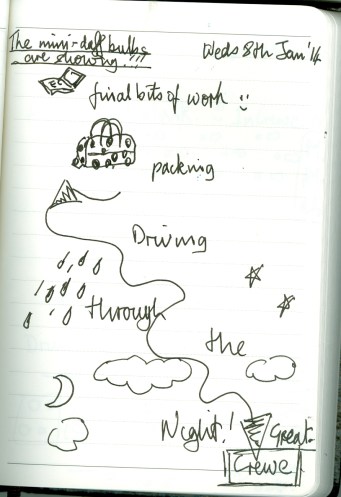 The mini-daff bulbs
are showing...!!!
Weds 8th Jan '14
final bits of work
packing
Driving
through
the
Night!
Great
Crewe